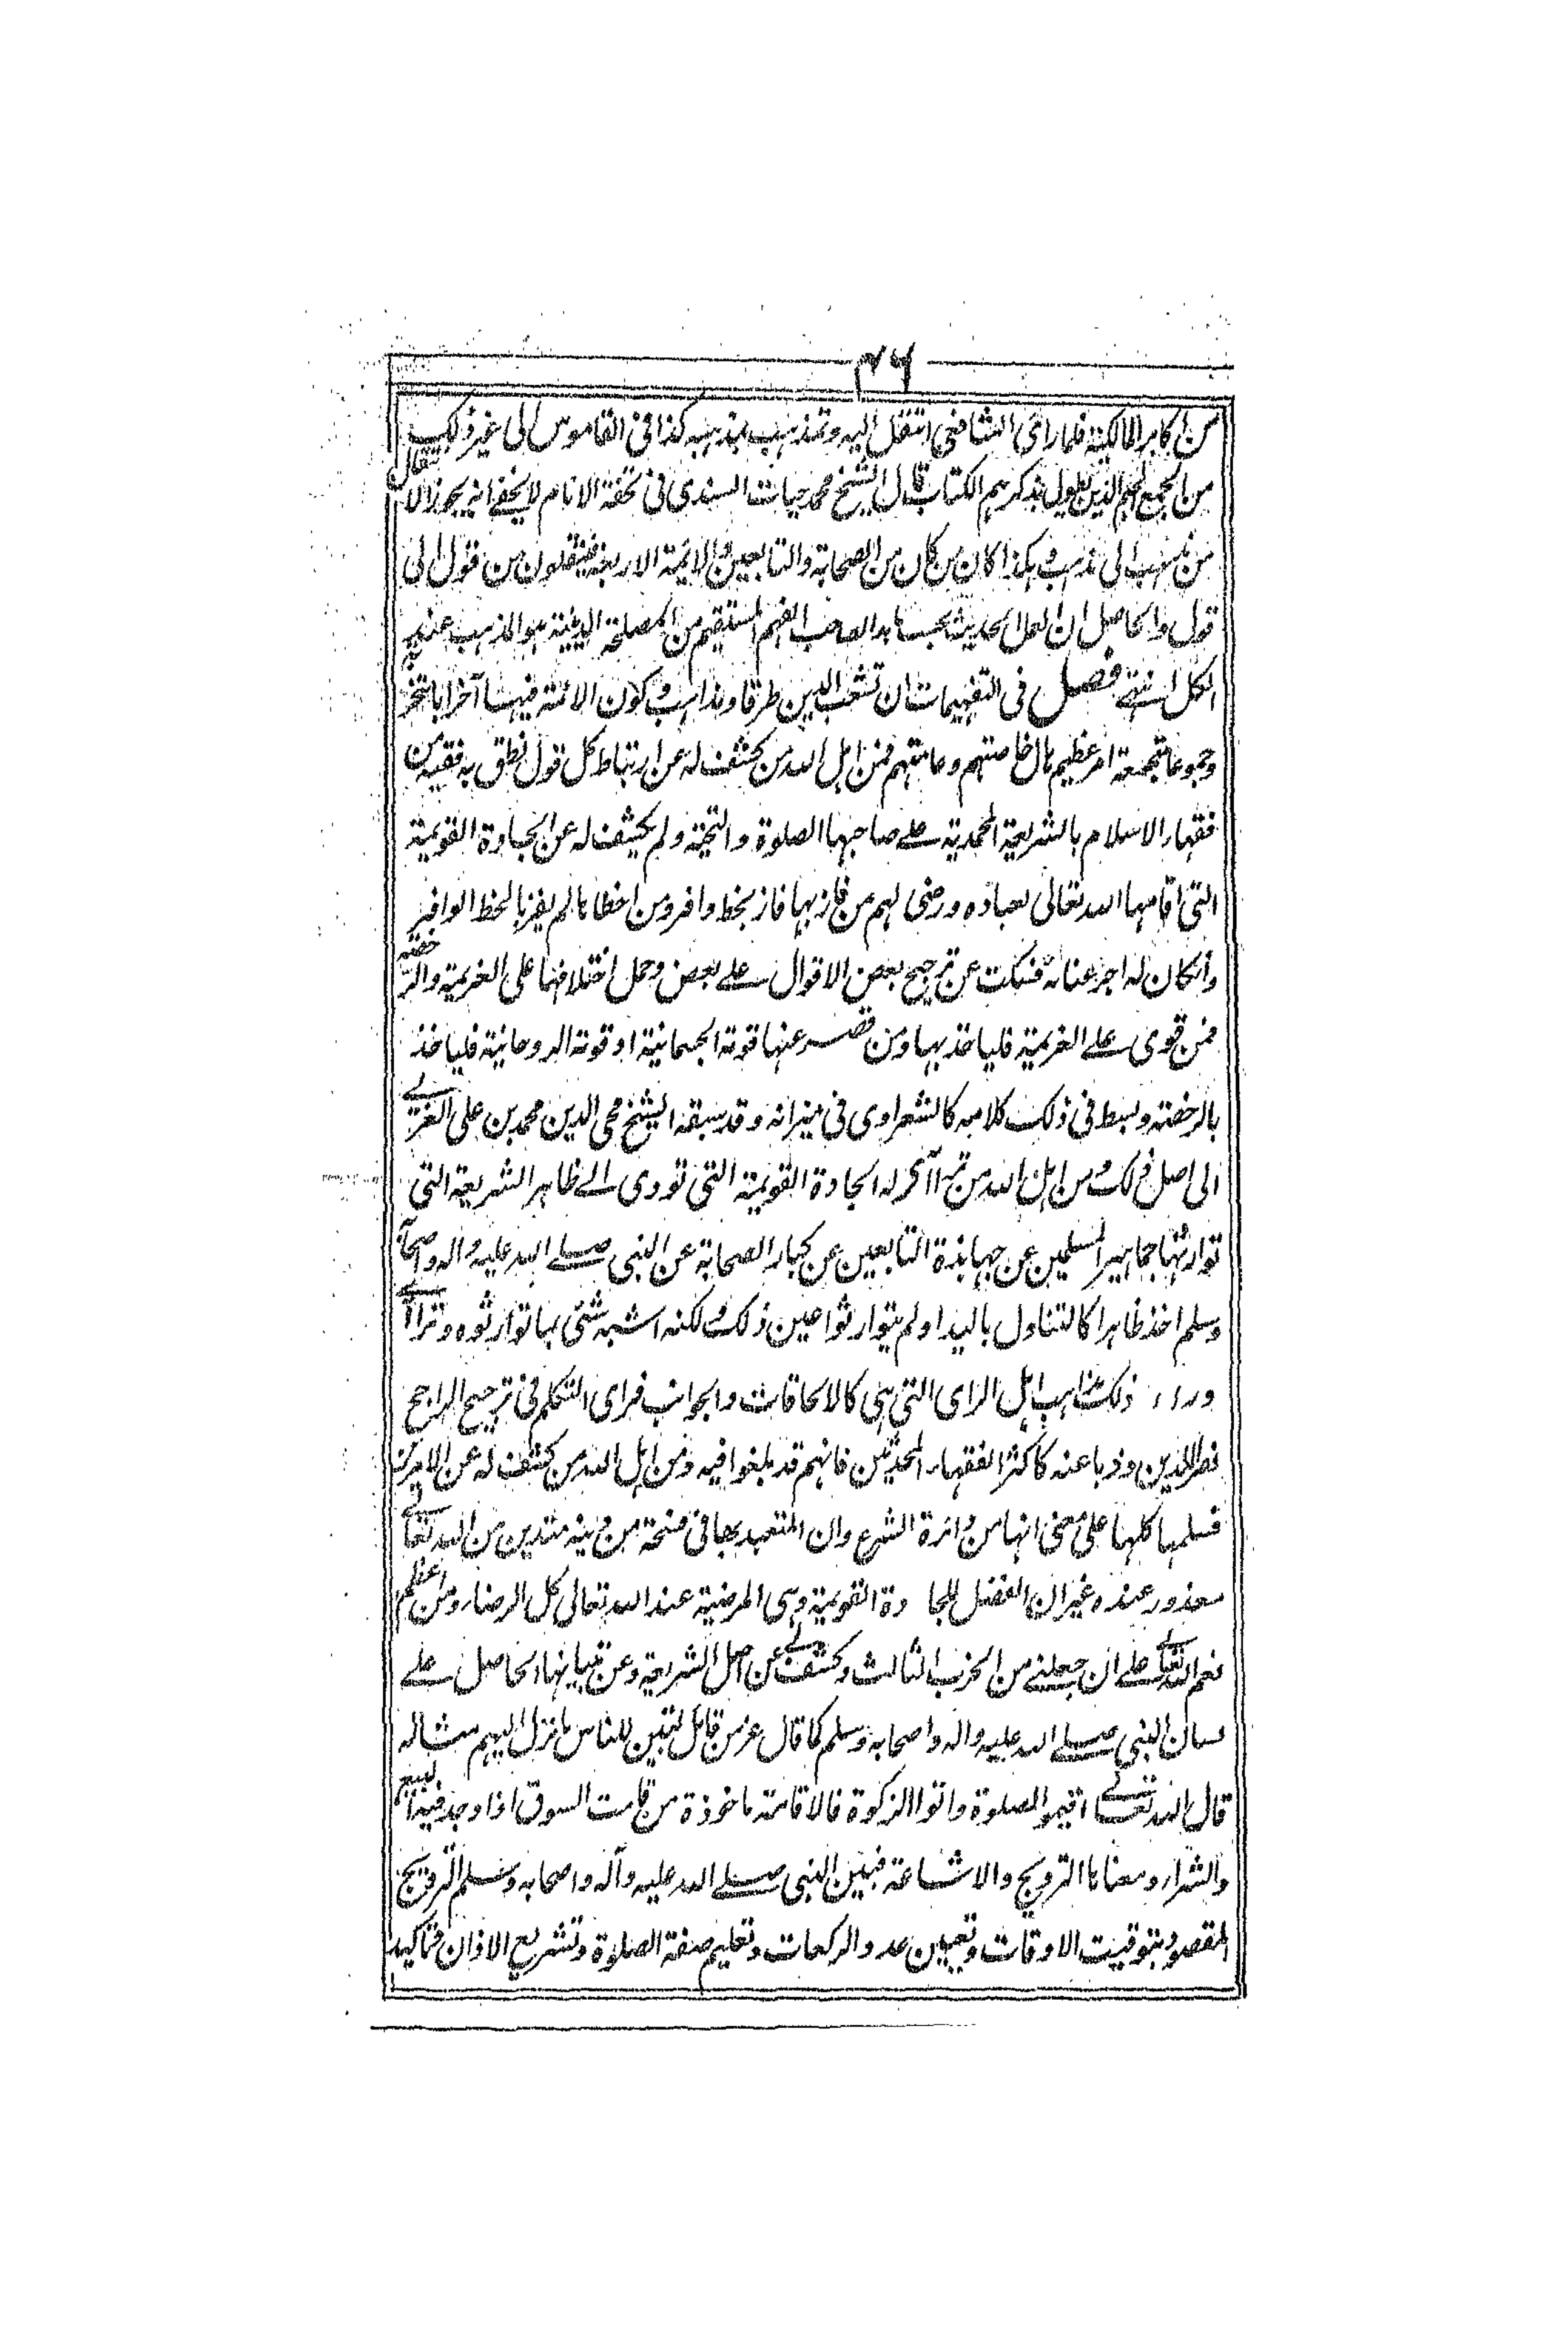 ٤٦
من اكابر المالكية فلما راى الشافعى انتقل اليه وتمذهب بمذهبه كذا فى القاموس الى غير ذلك
من الجمع الجم الذين يطول بذكرهم الكتاب قال الشيخ محمد حيات السندى فى تحفة الانام لا يخفى انه يجوز الانتقال
من مذهب الى مذهب وهكذا كان من كان من الصحابة والتابعين والائمة الاربعة فينتقلون من قول الى
قول والحاصل ان العمل بالحديث بحسب ما بدا لصاحب الفهم المستقيم من المصلحة الدينية هو المذهب عند
الكل انتهى فصل فى التفهيمات ان تشعب الدين طرقا ومذاهب وكون الائمة فيها آخرا
وجموعا مجتمعة امر عظيم هال خاصتهم وعامتهم فمن اهل الله من كشف له عن ارتباط كل قول نطق به فقيه من
فقهاء الاسلام بالشريعة المحمدية على صاحبها الصلوة والتحية ولم يكشف له عن الجادة القويمة
التى اقامها الله تعالى لعباده ورضى لهم من فاز بها فاز بحظ وافر ومن اخطاها لم يفز بالحظ الوافر
وانكان له اجر عنائه فسكت عن ترجيح بعض الاقوال على بعض وحمل اختلافها على العزيمة والرخصة
فمن قوى على العزيمة فلياخذ بها ومن قصر عنها قوته الجسمانية او قوته الروحانية فلياخذ
بالرخصة وبسط فى ذلك كلامه كالشعراوى فى ميزانه وقد سبقه الشيخ محى الدين محمد بن على العربى
الى اصل ذلك ومن اهل الله من تراآى له الجادة القويمة التى تودى الى ظاهر الشريعة التى
توارثها جماهير المسلمين عن جهابذة التابعين عن كبار الصحابة عن النبى صلى الله عليه واله واصحابه
وسلم اخذ ظاهرا كالتناول باليد او لم يتوارثوا عين ذلك ولكنه اشبه شئ بما توارثوه وتراآى
وراء ذلك مذاهب اهل الراى التى هى كالالحاقات والجوانب فراى التكلم فى ترجيح الراجح
نصر للدين وذبا عنه كاكثر الفقهاء المحدثين فانهم قد بلغوا فيه ومن اهل الله من كشف له عن الامرين
فسلمها كلها على معنى انها من دائرة الشرع وان المتعبد بها فى فسحة من دينه متدين من الله تعالى
معذور عنده غير ان الفضل للجادة القويمة وهى المرضية عند الله تعالى كل الرضاء ومن اعظم
نعم الله تعالى على ان جعلنى من الحزب الثالث وكشف لى عن اصل الشريعة وعن تبيانها الحاصل على
لسان النبى صلى الله عليه واله واصحابه وسلم كما قال عز من قائل لتبين للناس ما نزل اليهم مثاله
قال الله تعالى اقيموا الصلوة واتوا الزكوة فالاقامة ماخوذة من قامت السوق اذا وجد فيها البيع
والشراء ومعناها الترويج والاشاعة فبين النبى صلى الله عليه وآله واصحابه وسلم الترويج
المقصود بتوقيت الاوقات وتعيين عدد الركعات وتعليم صفة الصلوة وتشريع الاذان